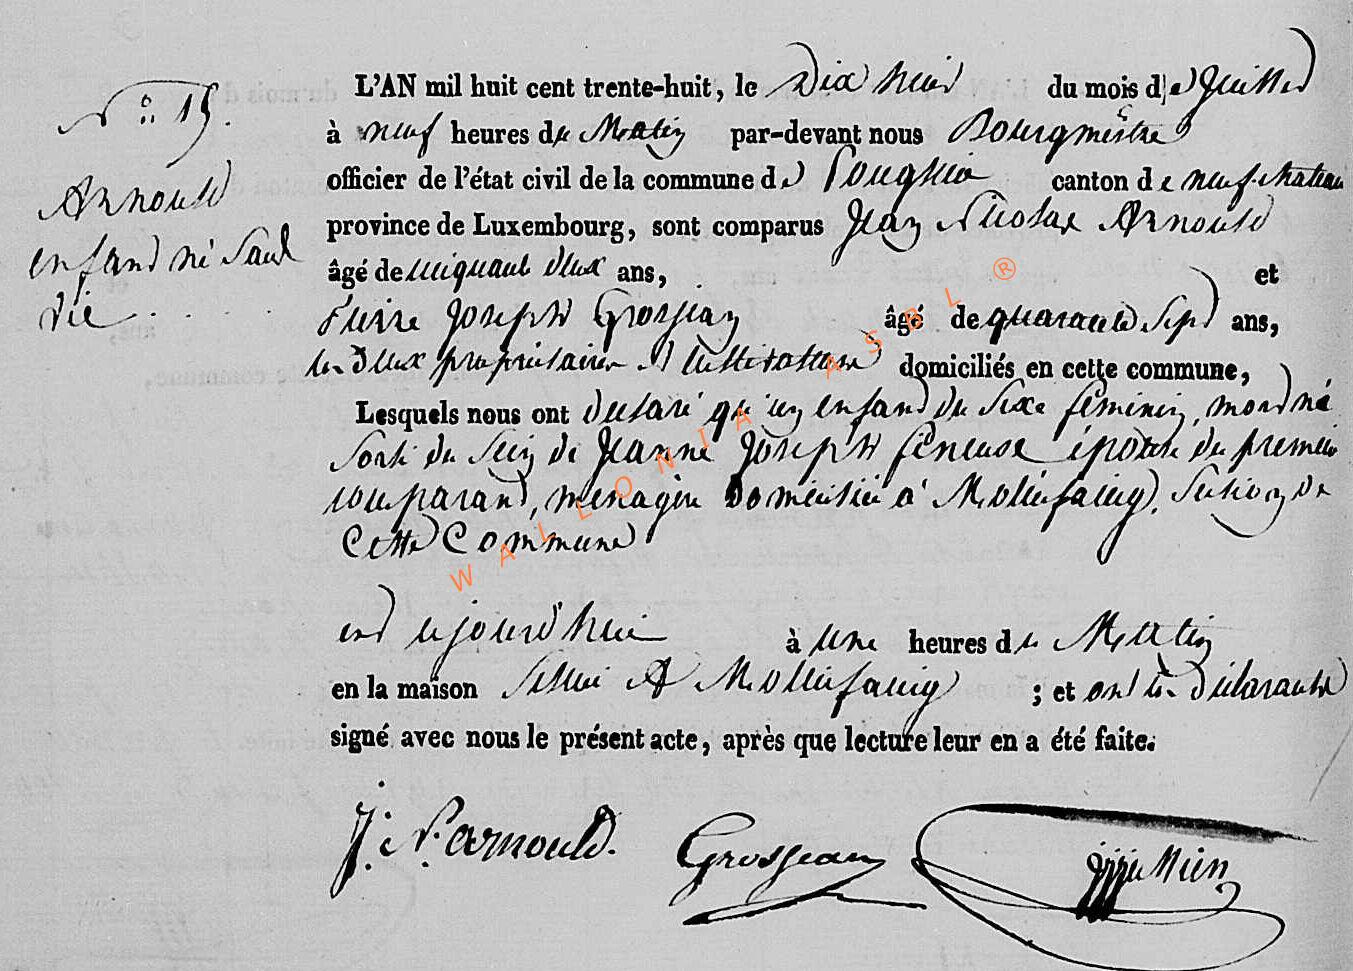 N° 15.
Arnould
enfand né sant
vie . . . . .
L'AN mil huit cent trente-huit, le Dix huit du mois de Juillet
à neuf heures du Matin par-devant nous Bourgmestre
officier de l'état civil de la commune de canton de neufchateau
province de Luxembourg, sont comparus Jean Nicolas Arnould
âgé de cinquante deux ans, et
Pierre Joseph Grosjean âgé de quarante sept ans,
les deux proprietaires et cultivateurs domiciliés en cette commune,
Lesquels nous ont declaré qu'un enfand du sexe féminin, mord né
sorti du sein de Jeanne Joseph épouse du premier
comparand, menagère domiciliée à Molinfaing, section de
Cette Commune
cejourd'hui à une heures du Matin
en la maison A Molinfaing ; et ont les déclarants
signé avec nous le présent acte, après que lecture leur en a été faite.
J. N. arnould. Grosjean
WALLONIA ASBL ®